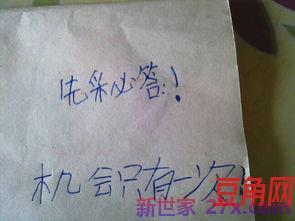 先采必答!
机会只有一次!
豆角网
新世家 27x.com